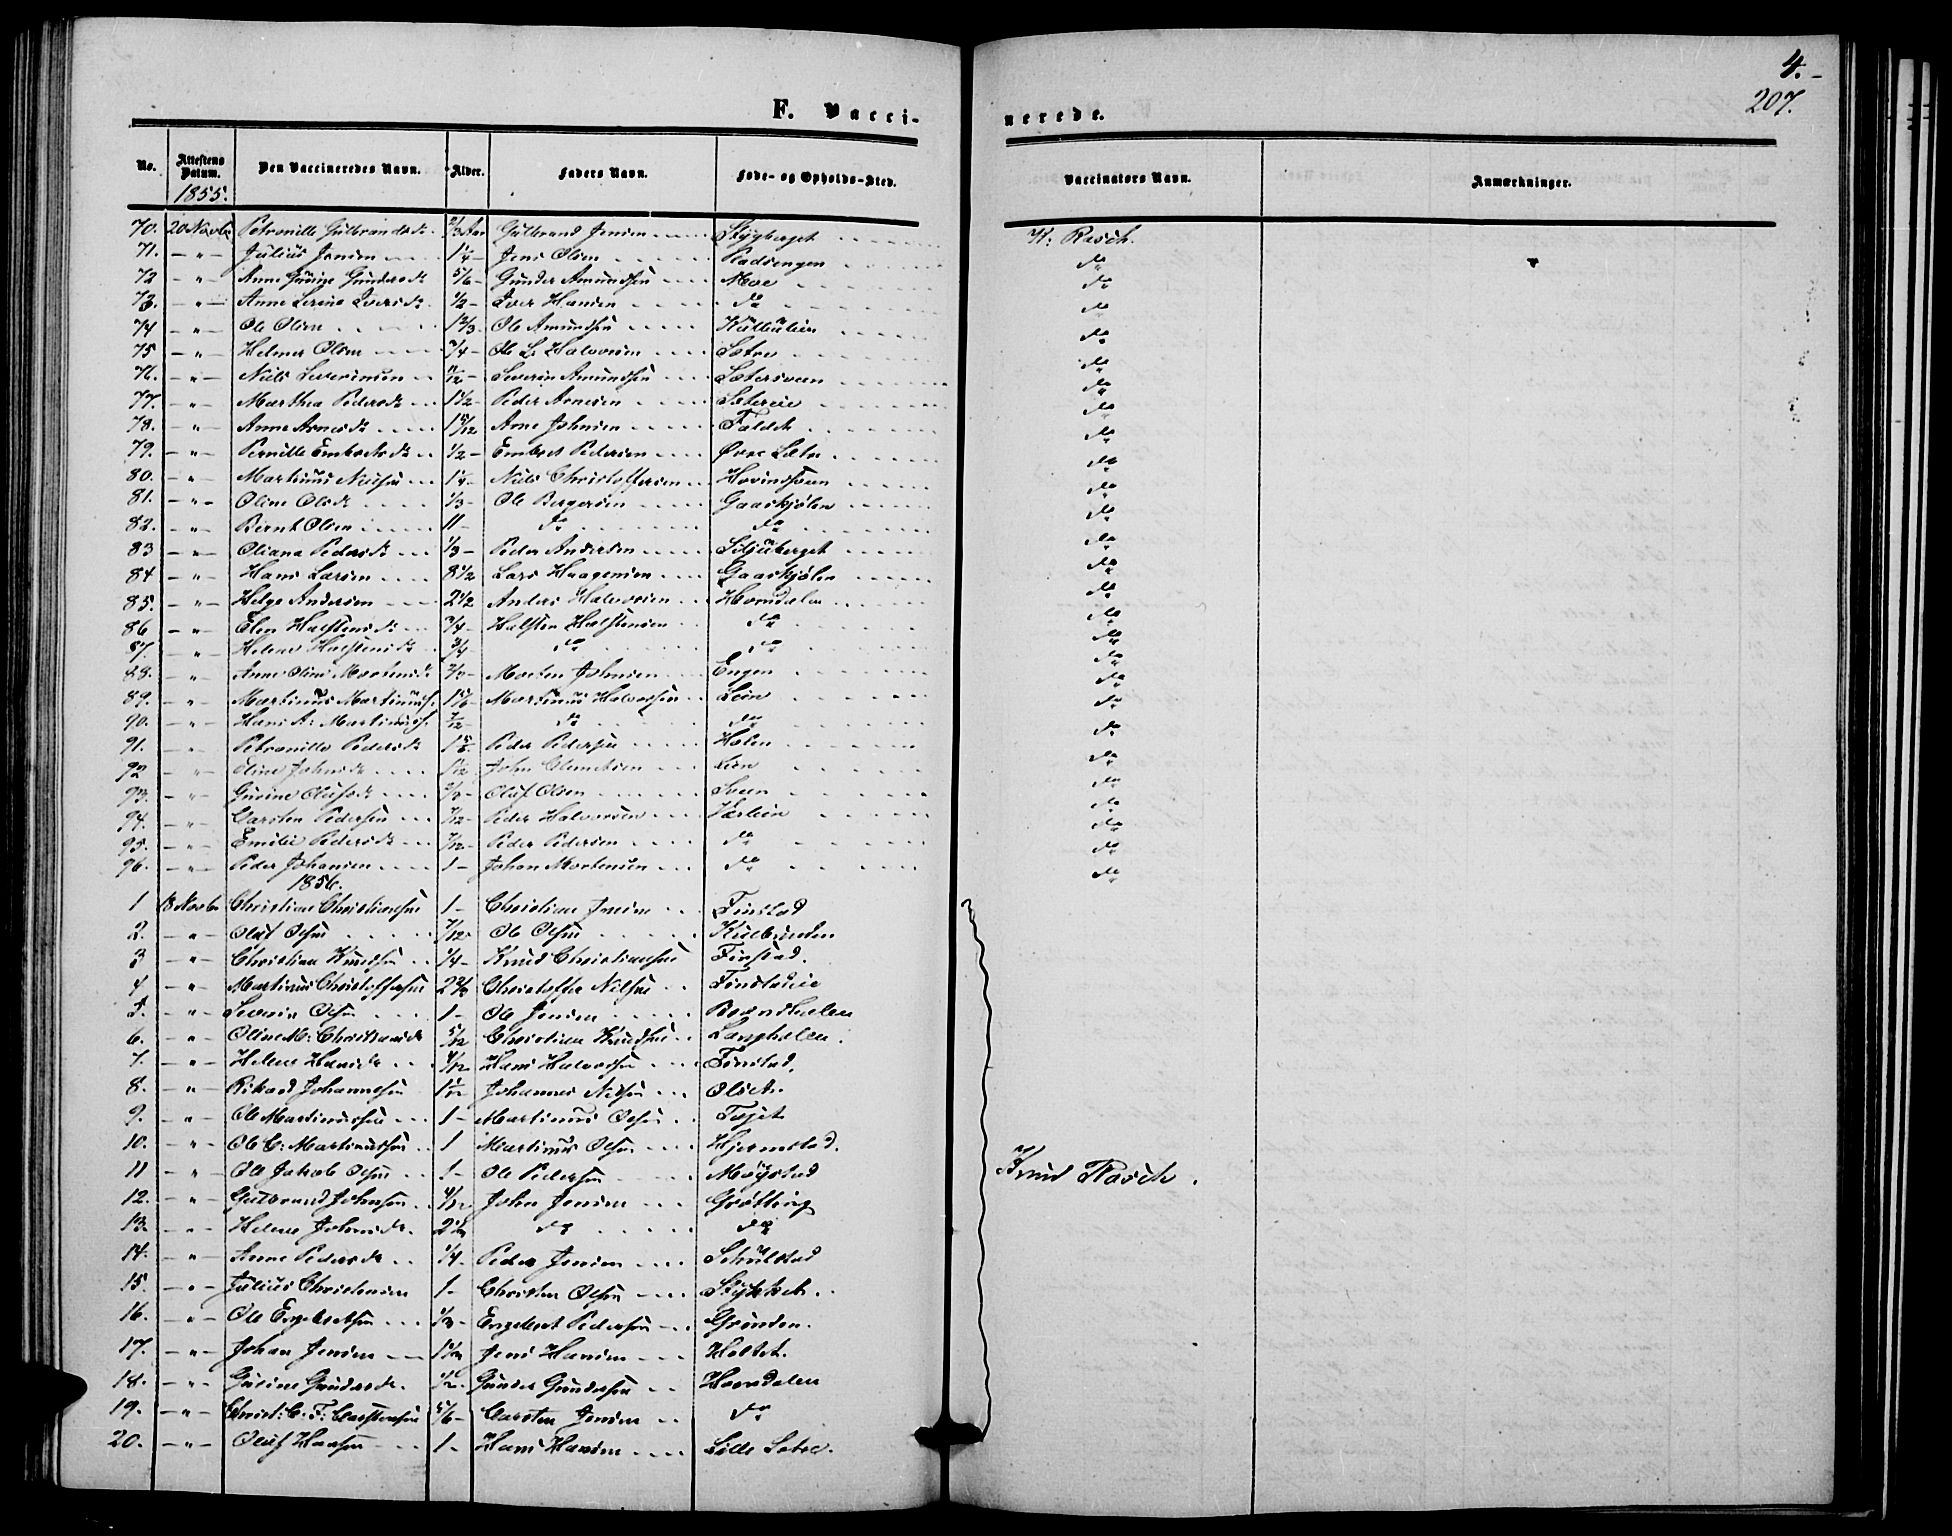 4.
207.
F. Vacci-
nerede.
No. Attestens Datum. Den Vaccineredes Navn. Alder. Faders Navn. Føde- og Opholds-Sted. Vaccinators Navn. Anmærkninger.
1855.
70. 20 Novbr Petronille Gulbrandsd. 2/3 Aar Gulbrand Jensen Stygberget K: Rasch.
71. - " - Julius Jensen 1/4 - Jens Olsen Pladsengen do
72 - " - Anne Gurine Gundersd. 5/6 - Gunder Amundsen Moe do
73. - " - Anne Lovise Iversd. 1/2 - Iver Hansen do do
74 - " - Ole Olsen 1 2/3 Ole Amundsen do
75 - " - Helmer Olsen 3/4 - Ole L. Halvorsen Sætre do
76. - " - Niels Severinsen 11/12 - Severin Amundsen Sætersveen do
77. - " - Marthea Pedersd. 1 1/2 - Peder Arnesen Sætereie do
78. - " - Anne Arnesd. 1 5/12 Arne Johnsen Faldet do
79. - " - Pernille Embretsd. 1/2 - Embret Pedersen Øvre Sætre do
80. - " - Martinus Nielsen Niels Christoffersen Hovindsveen do
81. - " - Oline Olsd. 1/3 - Ole Bergersen Gaaskjølen do
82. - " - Bernt Olsen 11 - do do do
83 - " - Oliana Pedersd. 1/3 - Peder Andersen Siljuberget do
84 - " - Hans Larsen 8 1/2 Lars Haagensen Gaaskjølen do
85. - " - Helge Andersen 2 1/2 Anders Halvorsen Horndalen do
86 - " - Elen Halstensd. 3/4 - Halsten Halstensen do do
87. - " - Helene Halstensd. 3/4 do do do
88. - " - Anne Oline Mortensd. Morten Johnsen Engen do
89. - " - Martinus Martinuss. 1 5/6 Martinus Halvorsen Lien do
90. - " - Hans A: Martinuss. 7/12 - do do do
91. - " - Petronille Pedersd. Peder Pedersen Holen do
92 - " - Oline Johnsd. John Clemetsen Lien do
93. - " - Gurine Olufsd. Oluf Olsen Sveen do
94. - " - Carsten Pedersen 7/12 - Peder Halvorsen do
95. - " - Emilie Pedersd. 7/12 - Peder Pedersen do do
96. - " - Peder Johansen 1 - Johan Mortensen do do
1856.
1 18 Novbr Christian Christiansen 1 - Christian Jensen Finstad
2. - " - Oluf Olsen 7/12 Ole Olsen
3 - " - Christian Knudsen 1/4 - Knud Christiansen Finstad.
4 - " - Martinus Christoffersen Christoffer Nilsen Finstadeie
5. - " - Severin Olsen 1 - Ole Jensen
6. - " - Oline M: Christiansd. 5/12 Christian Knudsen Langholen.
7. - " - Helene Hansd. Hans Halvorsen Finstad.
8. - " - Rikard Johannesen Johannes Nilsen Olset.
9. - " - Ole Martinussen 1 - Martinus Olsen
10. - " - Ole C: Martinussen 1 Martinus Olsen Hjermstad.
11 - " - Ole Jakob Olsen 1 - Ole Pedersen Møystad Knud Rasch.
12. - " - Gulbrand Johnsen John Jensen Grøtting
13. - " - Helene Johnsd. 2 1/2 do do
14. - " - Anne Pedersd. 1/4 - Peder Jensen Schulstad
15. - " - Julius Christensen 1 - Christen Olsen Stykket.
16. - " - Ole Engebretsen 1/3 - Engebret Pedersen Grinden.
17. - " - Johan Jensen Jens Hansen Holtet.
18. - " - Gurine Gundersd. Gunder Gundersen Horndalen
19. - " - Christ: C: F: Carstensen 5/6 - Carsten Jensen do
20. - " - Oluf Hansen 1 - Hans Hansen Lille Sætre.